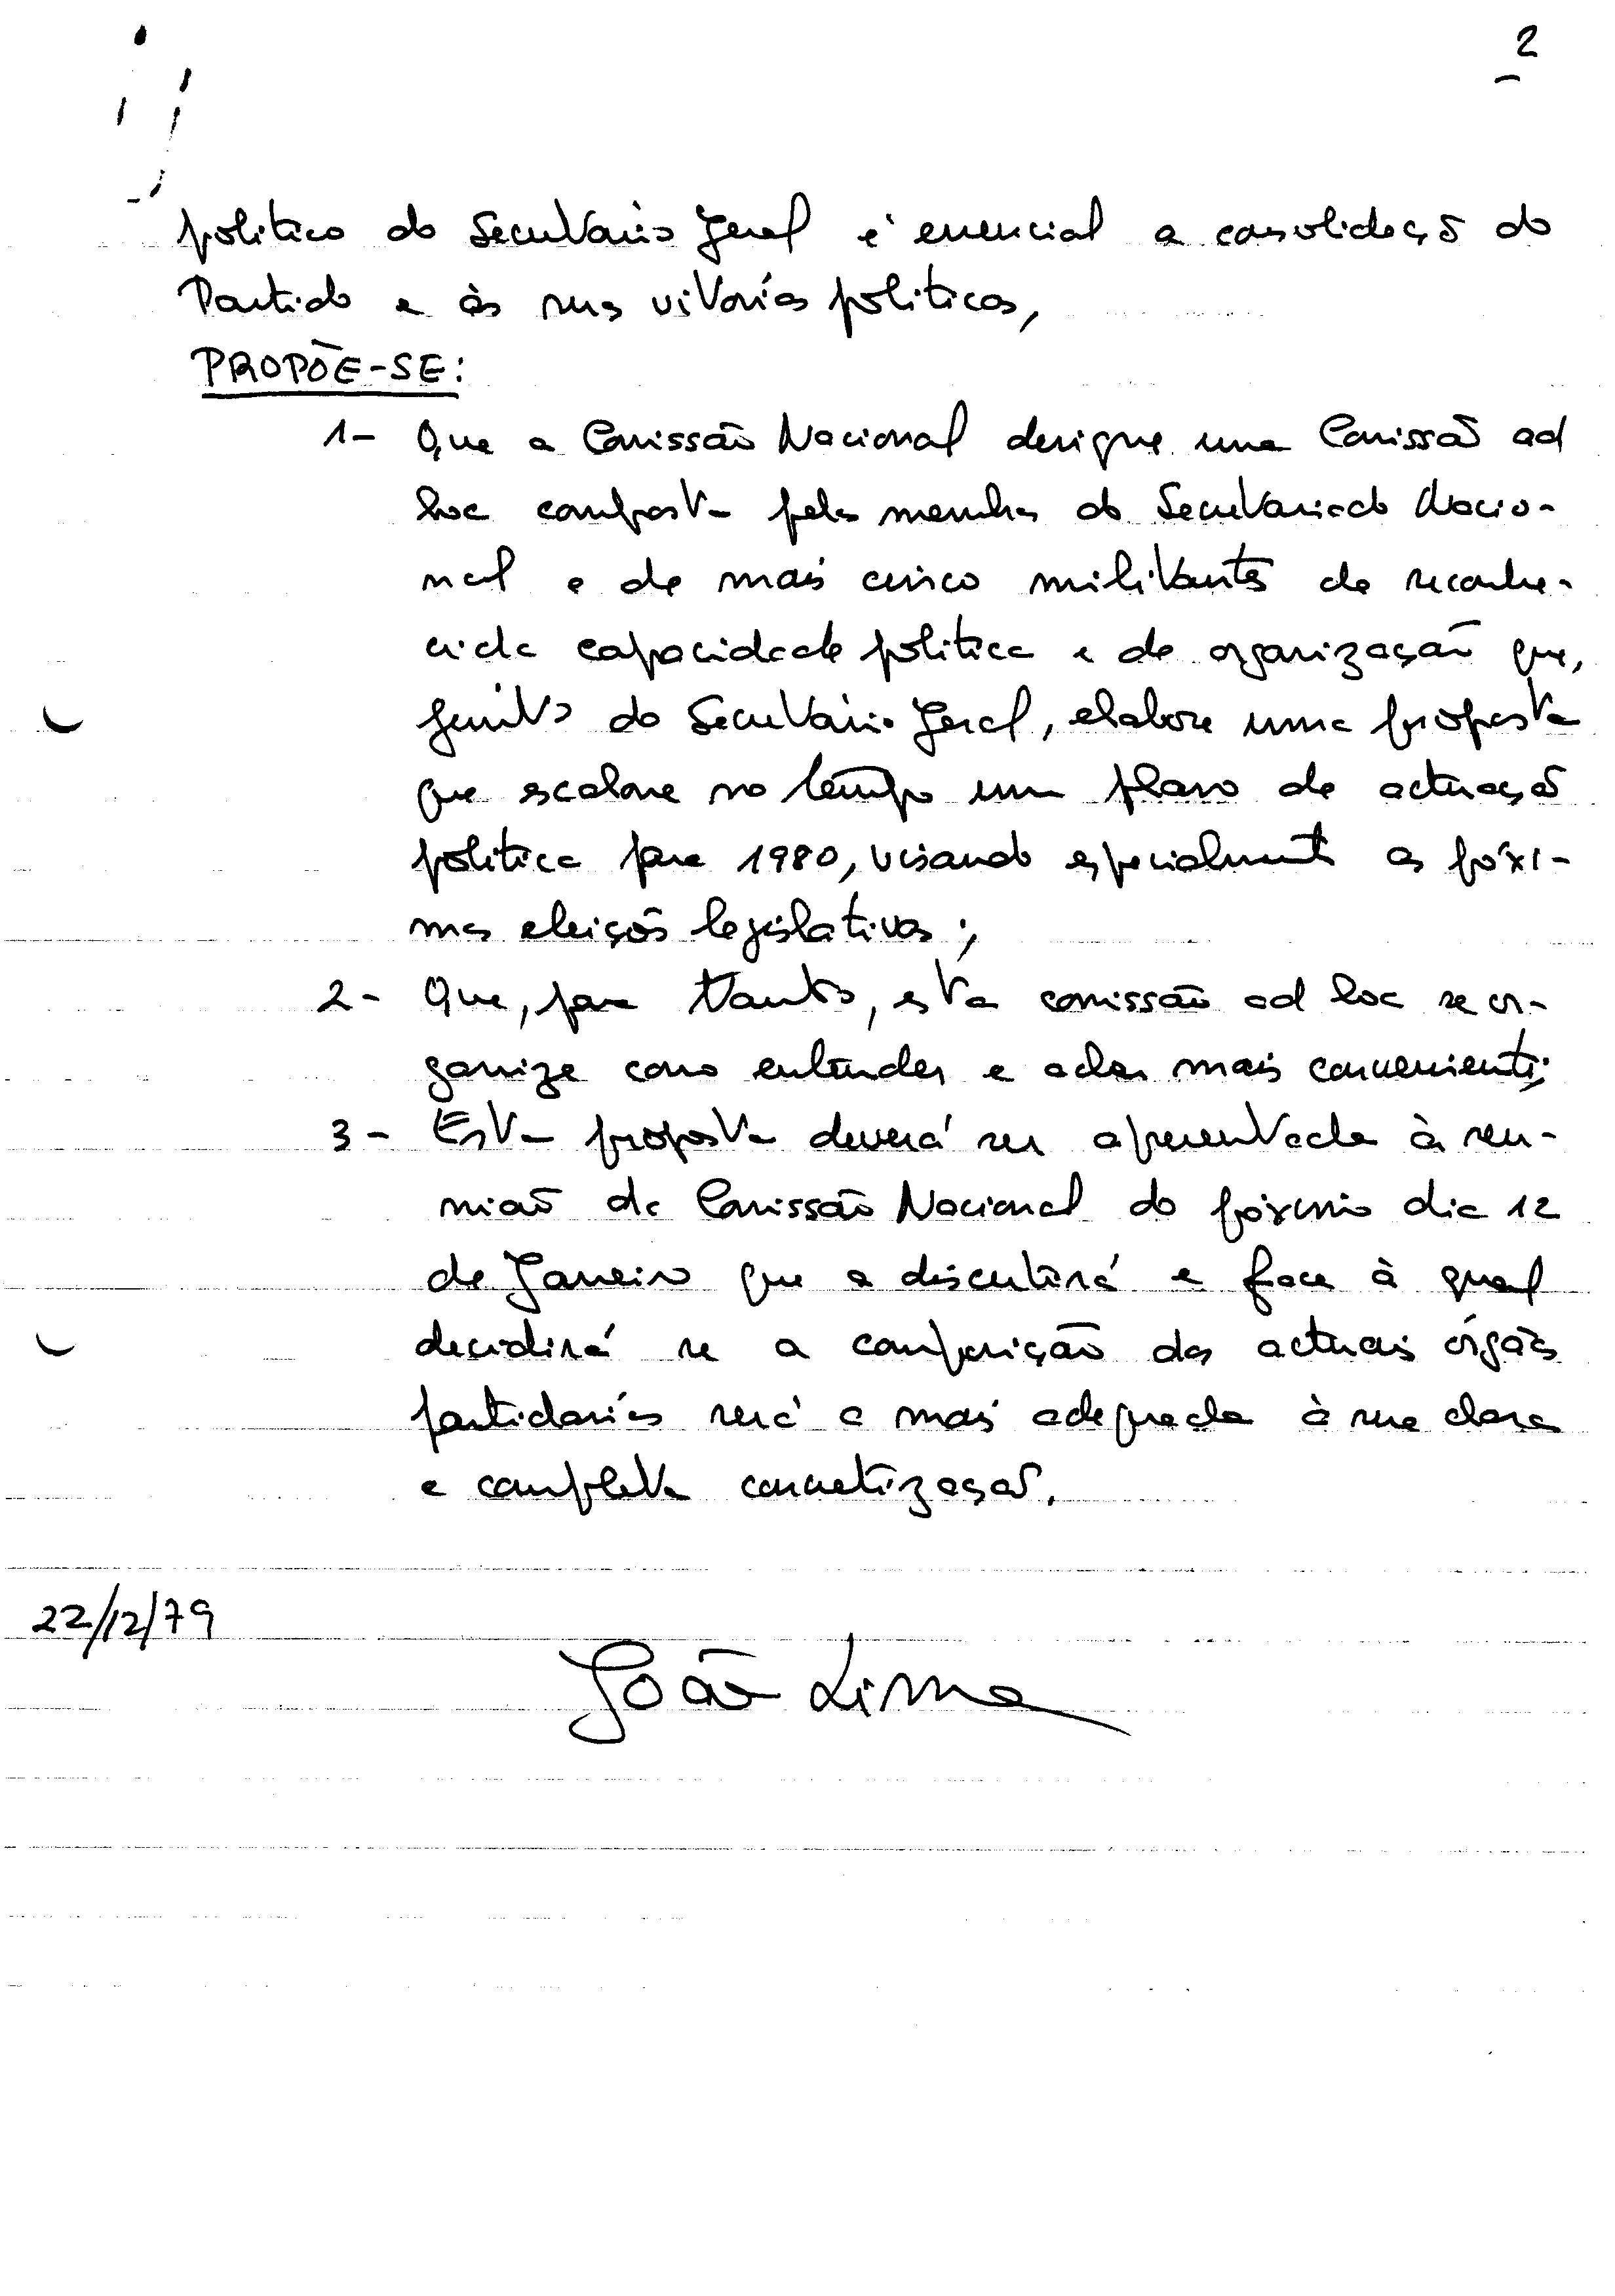 2
politico do Secretário Geral é essencial a consolidação do
Partido e às suas vitórias politicas,
PROPÕE-SE:
1- Que a Comissão Nacional designe uma Comissão ad
hoc composta pelos membros do Secretariado Nacio-
nal e de mais cinco militantes de reconhe-
cida capacidade politica e de organização que,
junto do Secretário Geral, elabore uma proposta
que escalone no tempo um plano de actuação
politica para 1980, visando especialmente as próxi-
mas eleições legislativas;
2- Que, para tanto, esta comissão ad hoc se or-
ganize como entender e achar mais conveniente;
3- Esta proposta deverá ser apresentada à reu-
nião da Comissão Nacional do próximo dia 12
de Janeiro que a discutirá e face à qual
decidirá se a composição dos actuais órgãos
partidários será a mais adequada à sua clara
e completa concretização.
22/12/79
João Lima